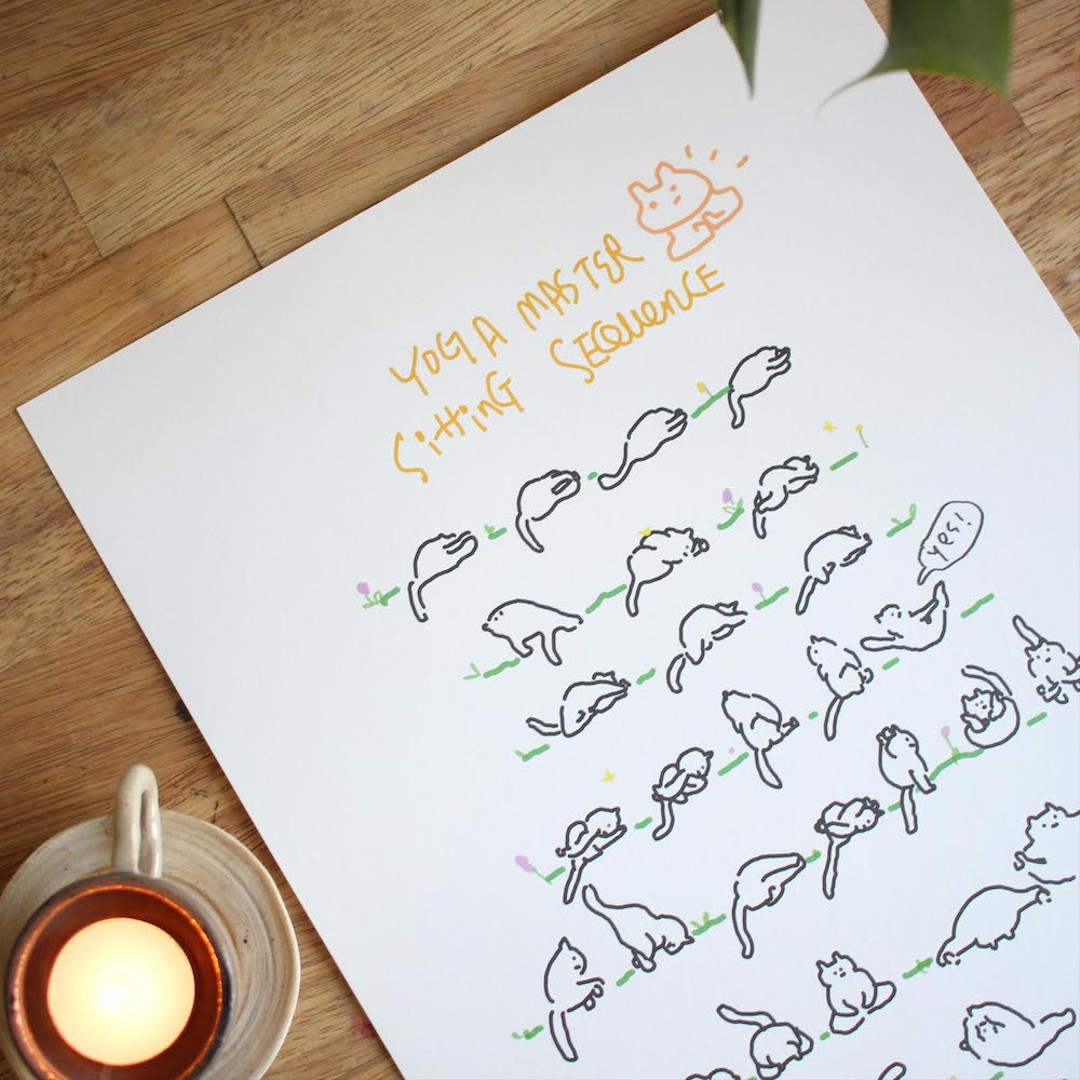 YOGA MASTER
SittinG SEQuenCE
yes!